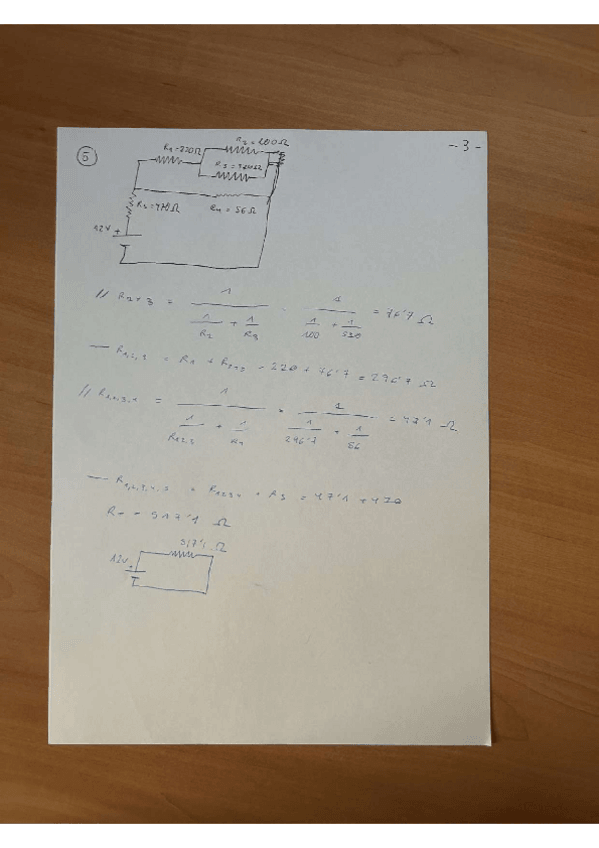 - 3 -
5
R1=220Ω
R2=100Ω
R3=330Ω
R4=56Ω
=470Ω
12V +
// R2+3 = 1 / (1/R2 + 1/R3) = 1 / (1/100 + 1/330) = 76'7 Ω
— R1,2,3 = R1 + R2+3 = 220 + 76'7 = 296'7 Ω
// = 1 / (1/R123 + 1/R4) = 1 / (1/296'7 + 1/56) = 47'1 Ω
— = R1234 + = 47'1 + 470
RT = 517'1 Ω
517'1 Ω
12V +